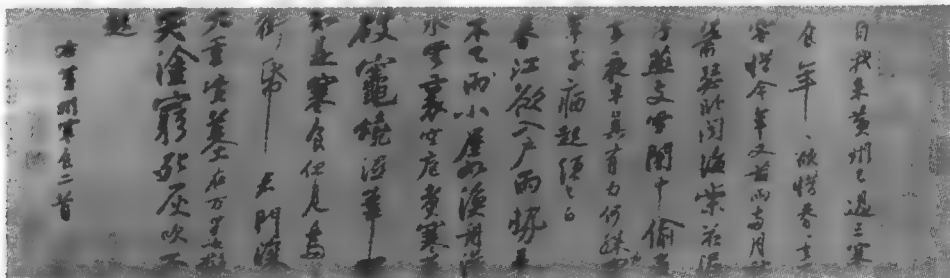 自我來黃州已過三寒
食年〻欲惜春〻去
容惜今年又苦雨兩月秋
蕭瑟臥聞海棠花泥
汙燕支雪闇中偷負
去夜半真有力何殊病少
年子病起須已白
春江欲入戶雨勢來
不已雨小屋如漁舟濛
水雲裏空庖煑寒菜
破竈燒濕葦
那知是寒食但見烏
銜帋 君門深
九重墳墓在万里也擬
哭塗窮死灰吹不
起
右黃州寒食二首